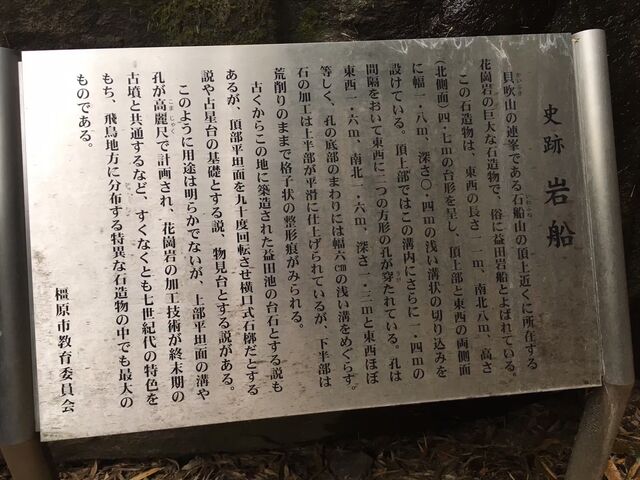 史跡 岩船
貝吹山の連峯である石船山の頂上近くに所在する
花崗岩の巨大な石造物で、俗に益田岩船とよばれている。
この石造物は、東西の長さ一一m、南北八m、高さ
(北側面)四・七mの台形を呈し、頂上部と東西の両側面
に幅一・八m、深さ〇・四mの浅い溝状の切り込みを
設けている。頂上部ではこの溝内にさらに一・四mの
間隔をおいて東西に二つの方形の孔が穿たれている。孔は
東西一・六m、南北一・六m、深さ一・三mと東西ほぼ
等しく、孔の底部のまわりには幅六cmの浅い溝をめぐらす。
石の加工は上半部が平滑に仕上げられているが、下半部は
荒削りのままで格子状の整形痕がみられる。
古くからこの地に築造された益田池の台石とする説も
あるが、頂部平坦面を九十度回転させ横口式石槨だとする
説や占星台の基礎とする説、物見台とする説がある。
このように用途は明らかでないが、上部平坦面の溝や
孔が高麗尺で計画され、花崗岩の加工技術が終末期の
古墳と共通するなど、すくなくとも七世紀代の特色を
もち、飛鳥地方に分布する特異な石造物の中でも最大の
ものである。
橿原市教育委員会